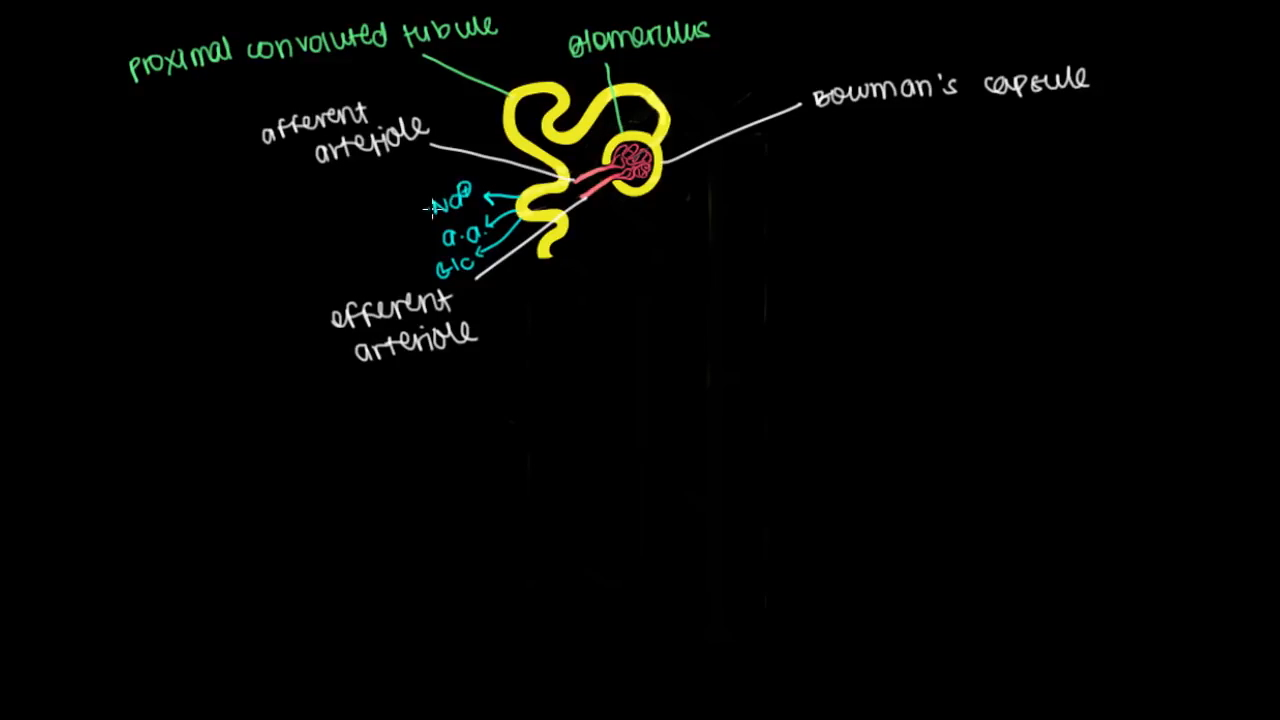 proximal convoluted tubule
glomerulus
Bowman's capsule
afferent
arteriole
Na+
a.a.
Glc
efferent
arteriole